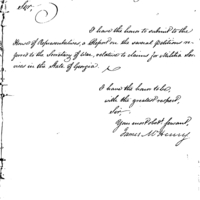 Sir,
I have the honor to submit to the
House of Representatives, a Report on the several petitions re-
ferred to the Secretary of War, relative to claims for Militia Ser-
vices in the State of Georgia.
I have the honor to be,
with the greatest respect,
Sir,
Your most obt. servant,
James McHenry